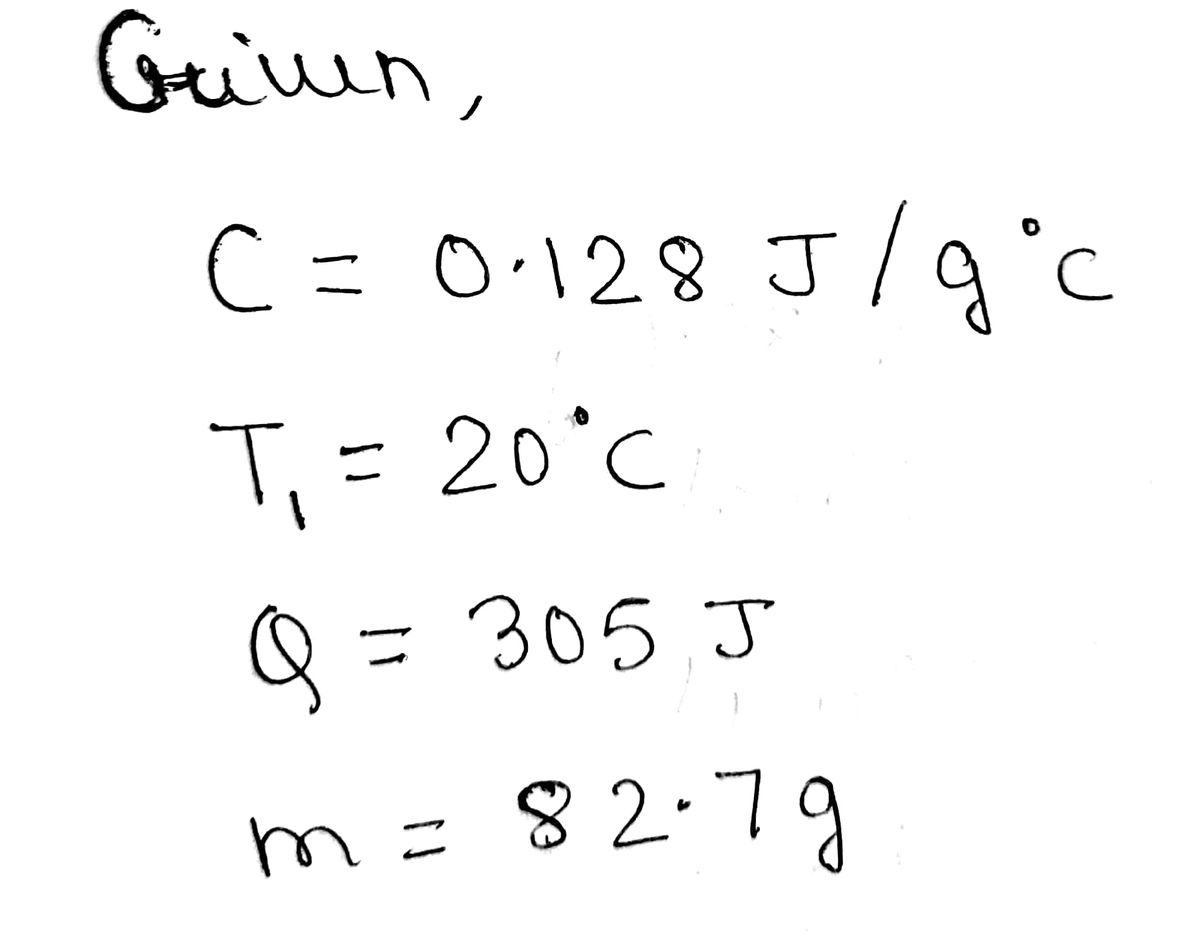 Given,
C = 0.128 J/g°C
T₁ = 20°C
Q = 305 J
m = 82.7g